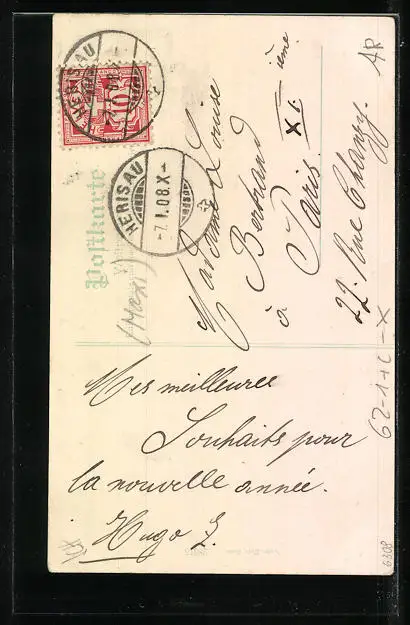 HERISAU
10
HERISAU
-7.I.08.X-
Postkarte
Madame Louise
Bertrand
à Paris XI ième
22. Rue Chanzy.
AR
Mes meilleures
Souhaits pour
la nouvelle année.
Hugo
62-1+C-X
6308